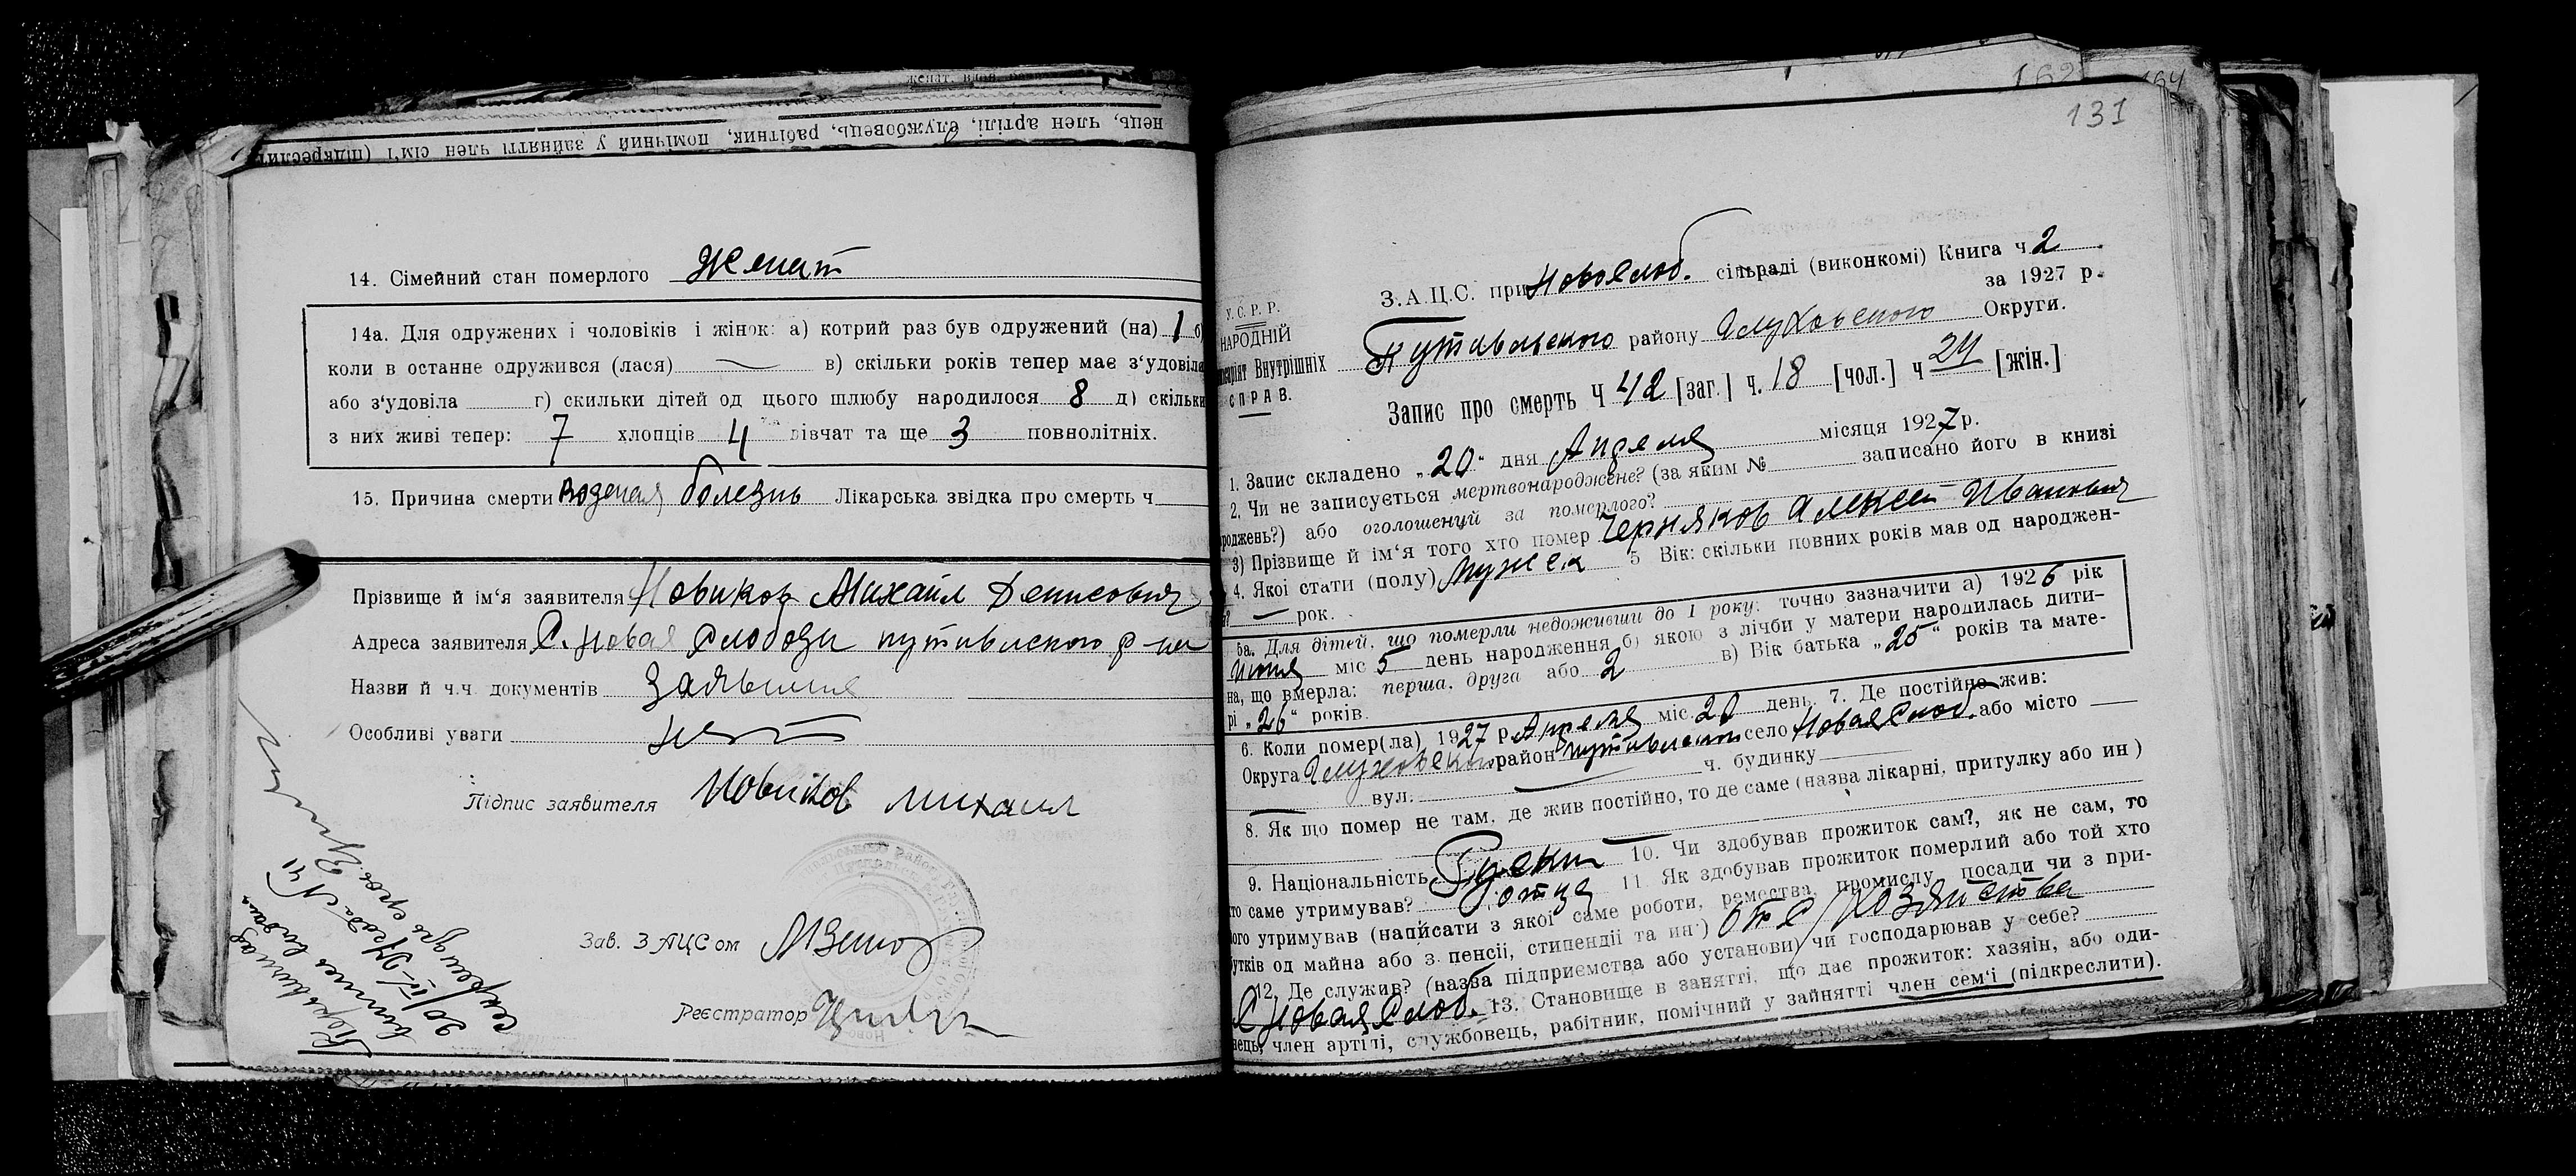 нець, член артілі, службовець, рабітник, помічний у зайнятті член сім'ї (підкреслит
14. Сімейний стан померлого Женат
14а. Для одружених і чоловіків і жінок: а) котрий раз був одружений (на) 1 б)
коли в останне одружився (лася) — в) скільки років тепер має з'удовіла
або з'удовіла г) скильки дітей од цього шлюбу народилося 8 д) скільки
з них живі тепер: 7 хлопців 4 дівчат та ще 3 повнолітніх.
15. Причина смерти Водяная болезнь Лікарська звідка про смерть ч
Прізвище й ім'я заявителя Новиков Михаил Денисович
Адреса заявителя С. Новая Слобода путивлского р-на
Назви й ч.ч. документів
Особливі уваги нет
Підпис заявителя Новиков михаил
Зав. ЗАЦСом
Реєстратор
162
164
131
У.С.Р.Р.
НАРОДНІЙ
Внутрішніх
СПРАВ.
З.А.Ц.С. при Новослоб. сільраді (виконкомі) Книга ч 2
за 1927 р.
Путивльского району Глуховского Округи.
Запис про смерть Ч 42 [заг.] ч. 18 [чол.] ч 24 [жін.]
1. Запис складено „20" дня Апреля місяця 1927 р.
2. Чи не записується мертвонароджене? (за яким № записано його в книзі
роджень?) або оголошений за померлого?
3) Прізвище й ім'я того хто помер Черняков Алексей Иванович
4. Якої стати (полу) мужск 5 Вік: скільки повних років мав од народжен-
— рок.
5а. Для дітей, що померли недоживши до 1 року: точно зазначити а) 1926 рік
міс 5 день народження б) якою з лічби у матери народилась дити-
на, що вмерла: перша, друга або 2 в) Вік батька „25" років та мате-
рі „26" років.
6. Коли помер(ла) 1927 р. Апреля міс. 20 день. 7. Де постійно жив:
Округа Глуховский район путивлский село Новая Слоб. або місто —
вул. — ч. будинку
8. Як що помер не там, де жив постійно, то де саме (назва лікарні, притулку або ин)
9. Національність Русский 10. Чи здобував прожиток сам?, як не сам, то
то саме утримував? отца 11. Як здобував прожиток померлий або той хто
ого утримував (написати з якої саме роботи, ремества, промислу, посади чи з при-
утків од майна або з пенсії, стипендії та ин.) от с/хозяйства
12. Де служив? (назва підприемства або установи) чи господарював у себе?
С Новая Слоб. 13. Становище в занятті, що дає прожиток: хазяін, або оди-
нець, член артілі, службовець, рабітник, помічний у зайнятті член сем'ї (підкреслити).